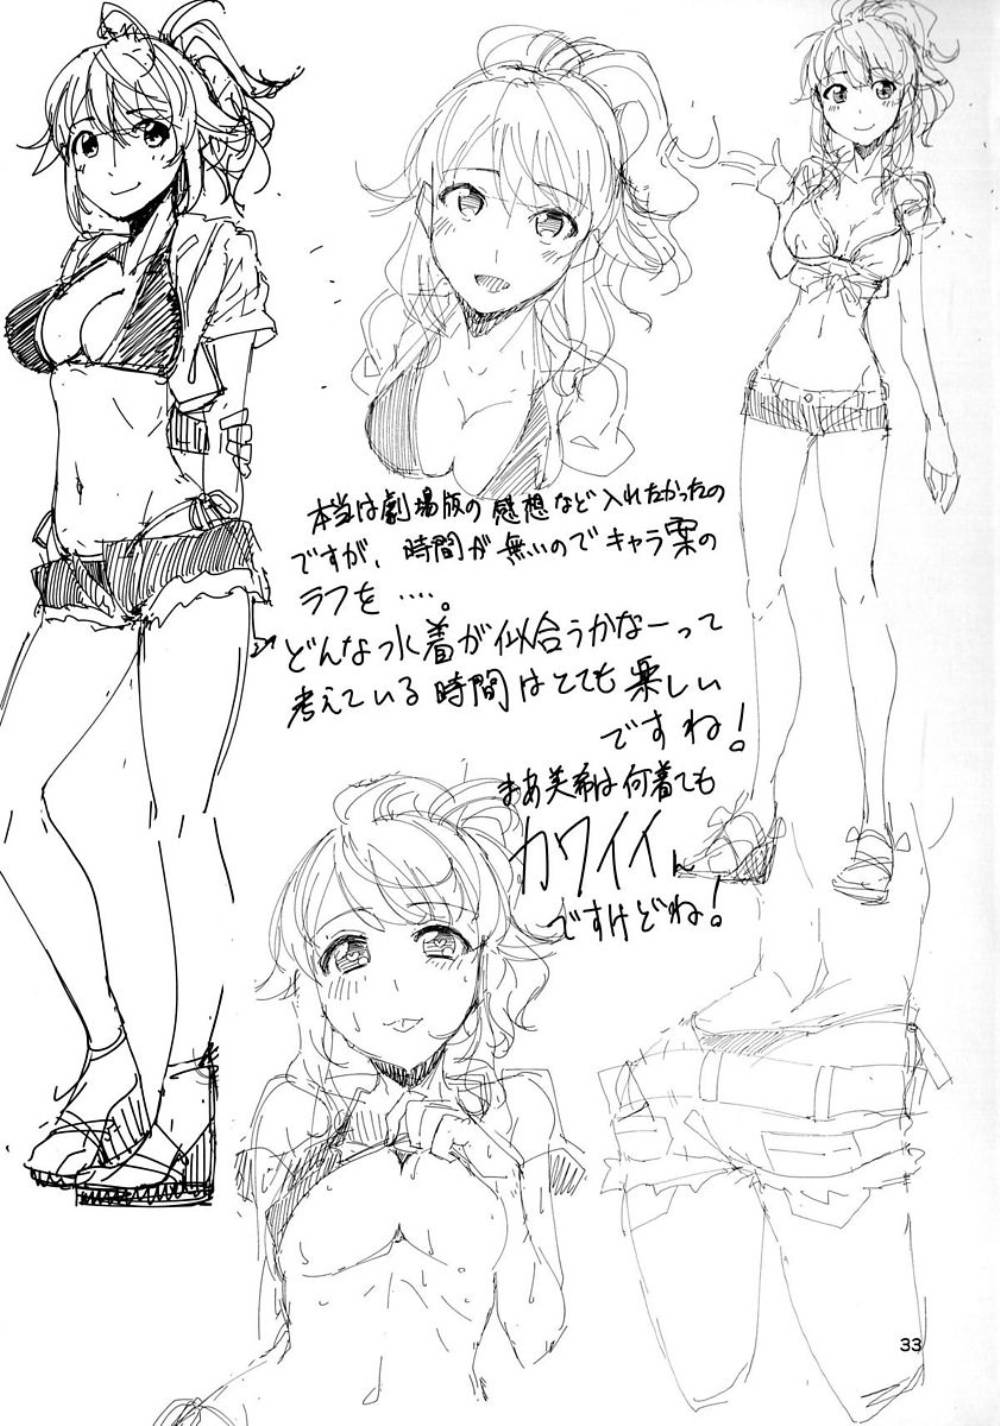 本当は劇場版の感想など入れたかったの
ですが、時間が無いのでキャラ案の
ラフを‥‥。
どんな水着が似合うかなーって
考えている時間はとても楽しい
ですね!
まあ美希は何着ても
カワイイん
ですけどね!
33